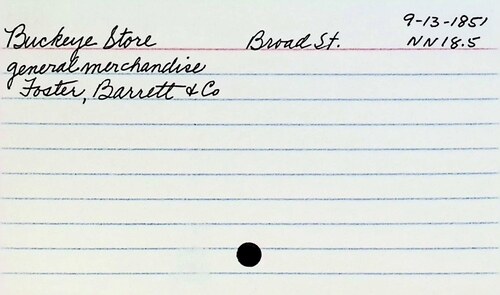 9-13-1851
Buckeye Store Broad St. NN18.5
general merchandise
Foster, Barrett & Co